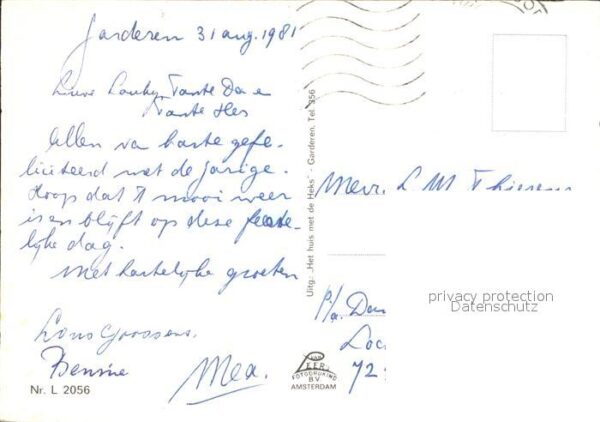 Garderen 31 aug. 1981
Lieve Tante Da e
Tante Hes
Allen va harte gefe-
liciteerd met de jarige.
Hoop dat 't mooi weer
is en blijft op deze feeste-
lijke dag.
Met hartelijke groeten
Goossens.
Bennie
Mea.
Nr. L 2056
Uitg.: „Het huis met de Heks" - Garderen, Tel. 256
VAN LEER'S
FOTODRUKIND
B.V.
AMSTERDAM
Mevr. L M Thissen
P/a. Da
Loc
72
privacy protection
Datenschutz